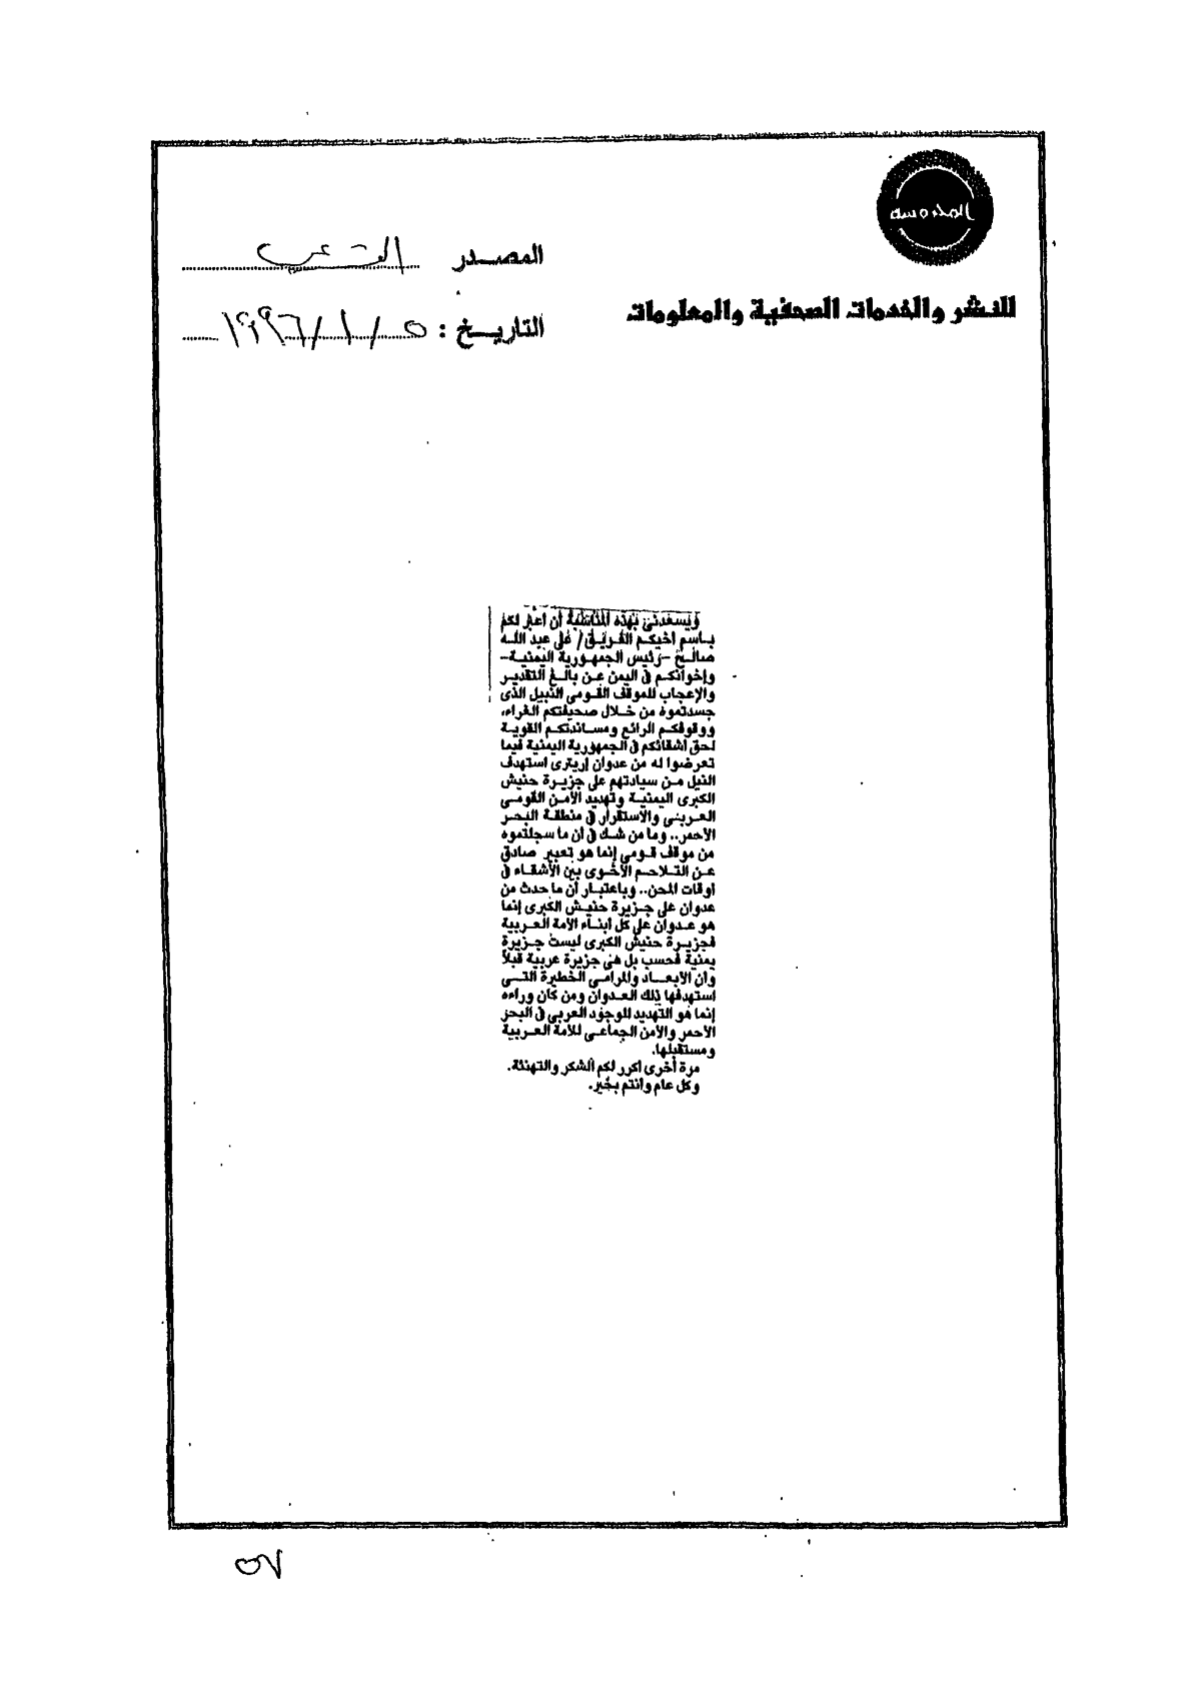 المحروسة
للنشر والخدمات الصحفية والمعلومات
المصدر الشعب
التاريخ : ٥/١/١٩٩٦
ويسعدنى بهذه المناسبة أن أعبر لكم
باسم أخيكم الفريق/ على عبد الله
صالح -رئيس الجمهورية اليمنية-
وإخوانكم فى اليمن عن بالغ التقدير
والإعجاب للموقف القومى النبيل الذى
جسدتموه من خلال صحيفتكم الغراء،
ووقوفكم الرائع ومساندتكم القوية
لحق أشقائكم فى الجمهورية اليمنية فيما
تعرضوا له من عدوان إريترى استهدف
النيل من سيادتهم على جزيرة حنيش
الكبرى اليمنية وتهديد الأمن القومى
العربى والاستقرار فى منطقة البحر
الأحمر.. وما من شك فى أن ما سجلتموه
من موقف قومى إنما هو تعبير صادق
عن التلاحم الأخوى بين الأشقاء فى
أوقات المحن.. وباعتبار أن ما حدث من
عدوان على جزيرة حنيش الكبرى إنما
هو عدوان على كل أبناء الأمة العربية
فجزيرة حنيش الكبرى ليست جزيرة
يمنية فحسب بل هى جزيرة عربية قبلاً
وأن الأبعاد والمرامى الخطيرة التى
استهدفها ذلك العدوان ومن كان وراءه
إنما هو التهديد للوجود العربى فى البحر
الأحمر والأمن الجماعى للأمة العربية
ومستقبلها.
مرة أخرى أكرر لكم الشكر والتهنئة.
وكل عام وأنتم بخير.